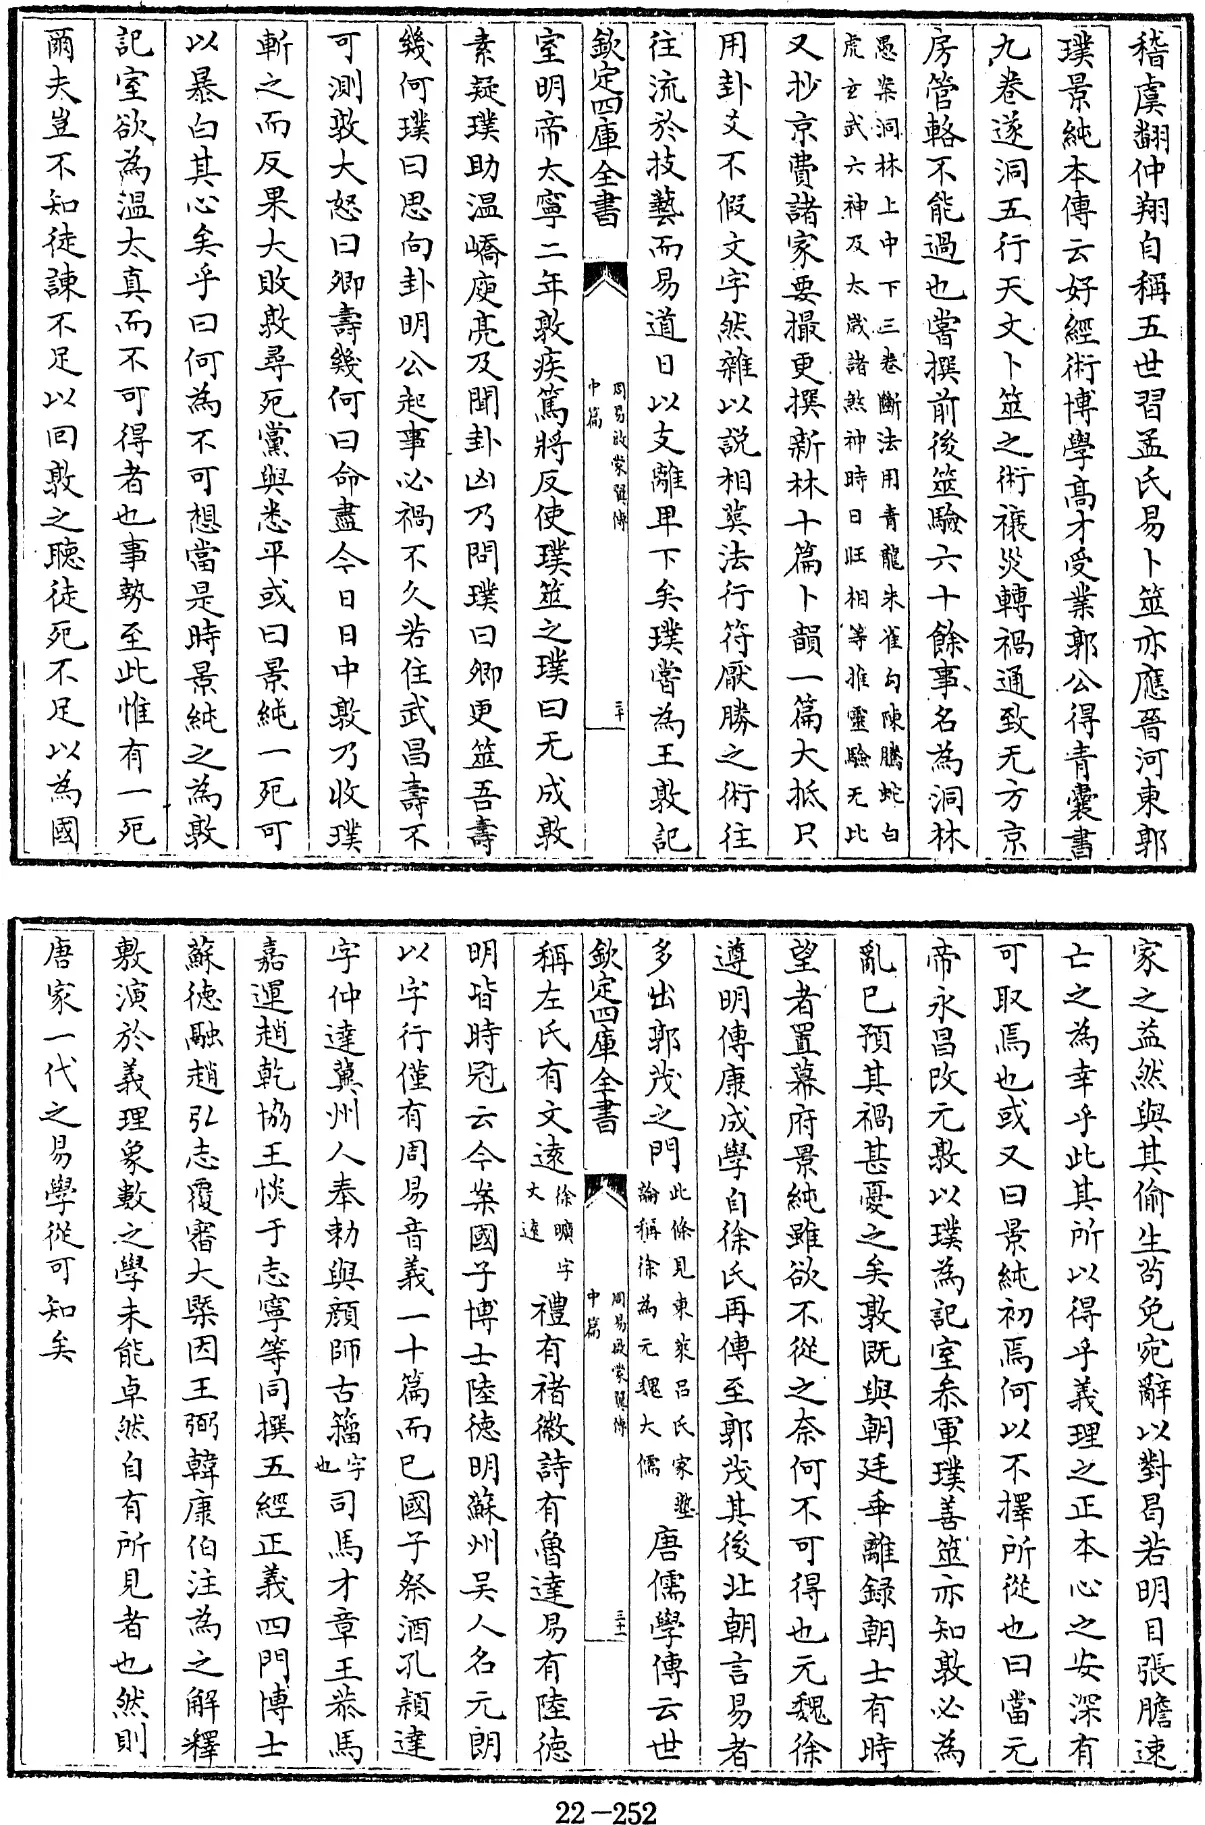 稽虞翻仲翔自稱五世習孟氏易卜筮亦應晉河東郭
璞景純本傳云好經術博學高才受業郭公得青囊書
九卷遂洞五行天文卜筮之術禳災轉禍通致无方京
房管輅不能過也嘗撰前後筮驗六十餘事名為洞林
愚案洞林上中下三卷斷法用青龍朱雀勾陳騰蛇白
虎玄武六神及太歲諸煞神時日旺相等推靈驗无比
又抄京費諸家要撮更撰新林十篇卜韻一篇大抵只
用卦爻不假文字然雜以説相冀法行符厭勝之術往
往流於技藝而易道日以支離卑下矣璞嘗為王敦記
欽定四庫全書
周易啟蒙翼傳
中篇
三十
室明帝太寧二年敦疾篤將反使璞筮之璞曰无成敦
素疑璞助溫嶠庾亮及聞卦凶乃問璞曰卿更筮吾壽
幾何璞曰思向卦明公起事必禍不久若住武昌壽不
可測敦大怒曰卿壽幾何曰命盡今日日中敦乃收璞
斬之而反果大敗敦尋死黨與悉平或曰景純一死可
以暴白其心矣乎曰何為不可想當是時景純之為敦
記室欲為溫太真而不可得者也事勢至此惟有一死
爾夫豈不知徒諫不足以回敦之聽徒死不足以為國
家之益然與其偷生苟免宛辭以對曷若明目張膽速
亡之為幸乎此其所以得乎義理之正本心之安深有
可取焉也或又曰景純初焉何以不擇所從也曰當元
帝永昌改元敦以璞為記室叅軍璞善筮亦知敦必為
亂已預其禍甚憂之矣敦既與朝廷乖離録朝士有時
望者置幕府景純雖欲不從之奈何不可得也元魏徐
遵明傳康成學自徐氏再傳至郭茂其後北朝言易者
多出郭茂之門此條見東萊呂氏家塾論稱徐為元魏大儒唐儒學傳云世
欽定四庫全書
周易啟蒙翼傳
中篇
三十一
稱左氏有文遠徐曠字文遠禮有褚徽詩有魯達易有陸德
明皆時冠云今案國子博士陸德明蘇州吳人名元朗
以字行僅有周易音義一十篇而已國子祭酒孔穎達
字仲達冀州人奉勅與顏師古籀字也司馬才章王恭馬
嘉運趙乾協王惔于志寧等同撰五經正義四門博士
蘇德融趙弘志覆審大槩因王弼韓康伯注為之解釋
敷演於義理象數之學未能卓然自有所見者也然則
唐家一代之易學從可知矣
22-252